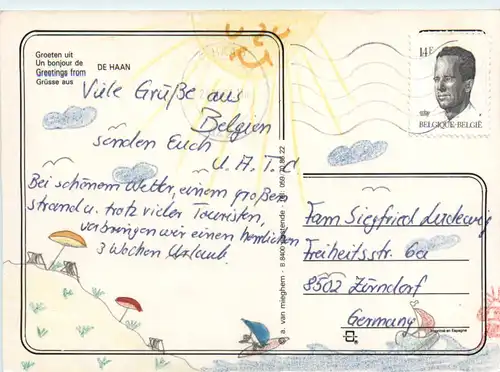 Groeten uit
Un bonjour de
Greetings from DE HAAN
Grüsse aus
Viele Grüße aus
Belgien
senden Euch
U. A. T. C
Bei schönem Wetter, einem großen
strand u. trotz vieler Touristen,
verbringen wir einen herrlichen
3 Wochen Urlaub
a. van mieghem - B 8400 Oostende -
14F
BELGIQUE·BELGIË
Fam Siegfried
Freiheitsstr. 6a
8502 Zirndorf
Germany